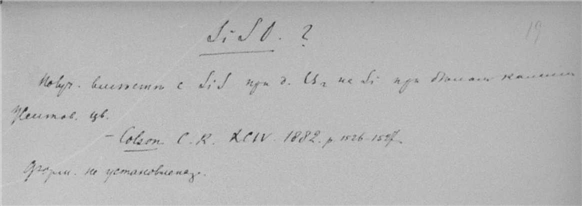 19
SiSO. ?
Получ. вместе с SiS при д. CS₂ на Si при белом калении
Желтов. цв.
— Colson C. R. XCIV 1882. p. 1526-1527.
Форм. не установлена.